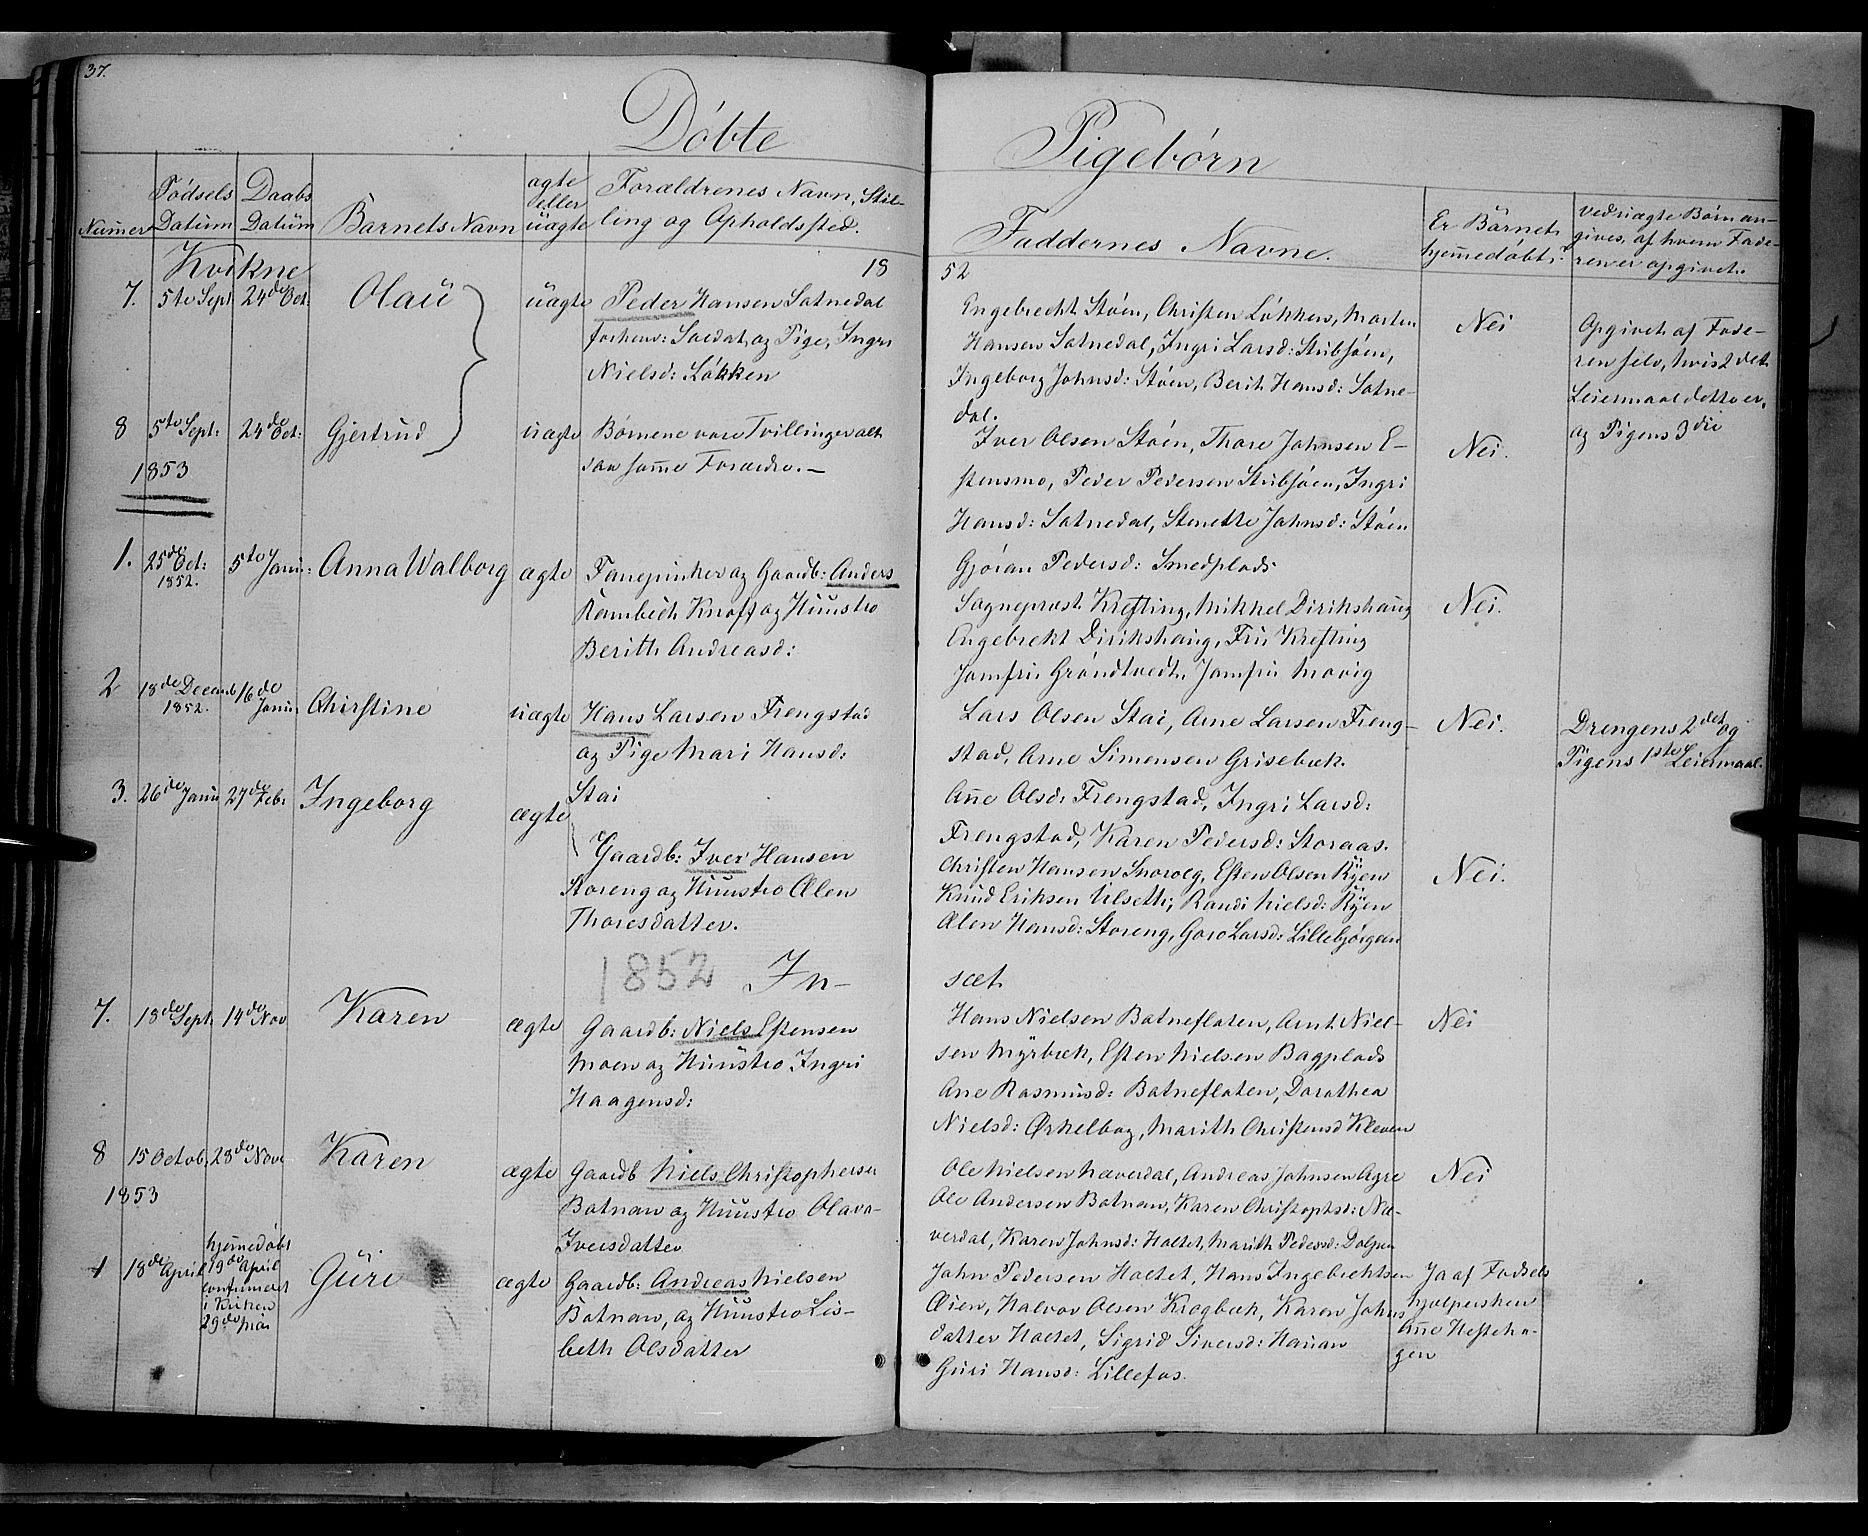 37.
Döbte
Pigebörn
Numer
Födsels Datum
Daabs Datum
Barnets Navn
ægte eller uægte
Forældrenes Navn, Stil-
ling og Opholdssted.
Faddernes Navne.
Er Barnet
hjemedöbt?
Ved uægte Börn an-
gives, af hvem Fade-
ren er opgivet.
Kvikne
18
52
7. 5te Sept 24de Oct. Olau uægte Peder Hansen Satnedal
forhenv: Soldat og Pige, Ingri
Nielsd: Løkken
Engebrecht Støen, Christen Løkken, Morten
Hansen Satnedal, Ingri Larsd: Stubsøen,
Ingeborg Johnsd: Støen, Berit Hansd: Satne-
dal.
Nei
Opgivet af Fade-
ren selv, hvis 2det
Leiermaal dette er,
og Pigens 3die
8 5te Sept: 24de Oct: Gjertrud uægte Børnene vare Tvillinger alt
saa samme Forældre. —
Iver Olsen Støen, Thore Johnsen E-
stensmo, Peder Pedersen Stubsøen, Ingri
Hansd: Satnedal, Stenette Johnsd: Støen
Gjøran Pedersd: Smedplads
Nei.
1853
1. 25de Oct: 1852. 5te Janu: Anna Walborg ægte Fanejunker og Gaardb: Anders
Rambech Knoff og Huustro
Berith Andreasd:
Sogneprest Krefting, Mikkel Dirikshaug
Engebrekt Dirikshaug, Fru Krefting
Jomfru Grøndtvedt, Jomfru Movig
Nei.
2 18de Decemb 1852. 16de Janu Christine uægte Hans Larsen Frengstad
og Pige Mari Hansd:
Stai
Lars Olsen Stai, Arne Larsen Freng-
stad, Arne Simensen Grisebæk.
Ane Olsd: Frengstad, Ingri Larsd:
Frengstad, Karen Pedersd: Storaas.
Nei.
Drengens 2det og
Pigens 1ste Leiermaal.
3. 26de Janu 27de Feb: Ingeborg ægte Gaardb: Iver Hansen
Storeng og Huustro Ælen
Thoresdatter.
Christen Hansen Snoroeg, Esten Olsen Ryen
Knud Eriksen Ulseth, Randi Nielsd: Ryen
Ælen Hansd: Storeng, Goro Larsd: Lillebjørgan
Nei.
1852 In-
sæt
7. 18de Sept 14de Nov Karen ægte Gaardb: Niels Estensen
Moen og Huustro Ingri
Haagensd:
Hans Nielsen Botnefloten, Arnt Niel-
sen Myrbæk, Esten Nielsen Bagplads
Ane Rasmusd: Botnefloten, Dorothea
Nielsd: Ørkelbog, Marith Christensd Kleven
Nei
8 15 Octob. 28de Nov: Karen ægte Gaardb Niels Christophersen
Botnan og Huustro Olava
Iversdatter
Ole Nielsen Næverdal, Andreas Johnsen Agre
Ole Andersen Botnan, Karen Christophsd: Næ-
verdal, Karen Johnsd: Holtet, Marith Pedersd:
Nei
1853
1 18de April hjemedöbt
19de April
confirmeret
i Kirken
29de Mai
Guri ægte Gaardb: Andreas Nielsen
Botnan, og Huustro Lis-
beth Olsdatter
John Pedersen Holtet, Hans Ingebrechtsen
Øien, Halvor Olsen Krogbæk, Karen Johns
datter Holtet, Sigrid Siversd: Hauan
Guri Hansd: Lillefos.
Ja af Fødsels
hjelpersken
Ane Hesteha-
gen